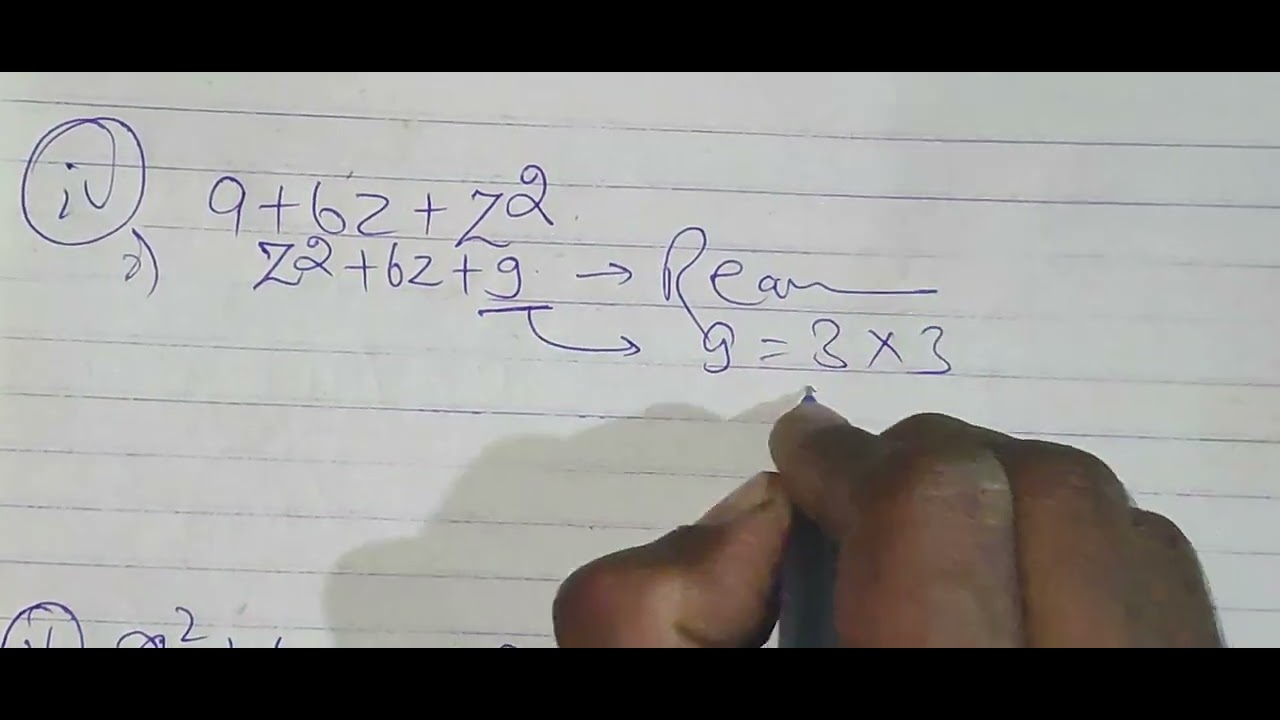 iv 9+6z+z²
z²+6z+9 → Rean
→ 9 = 3×3